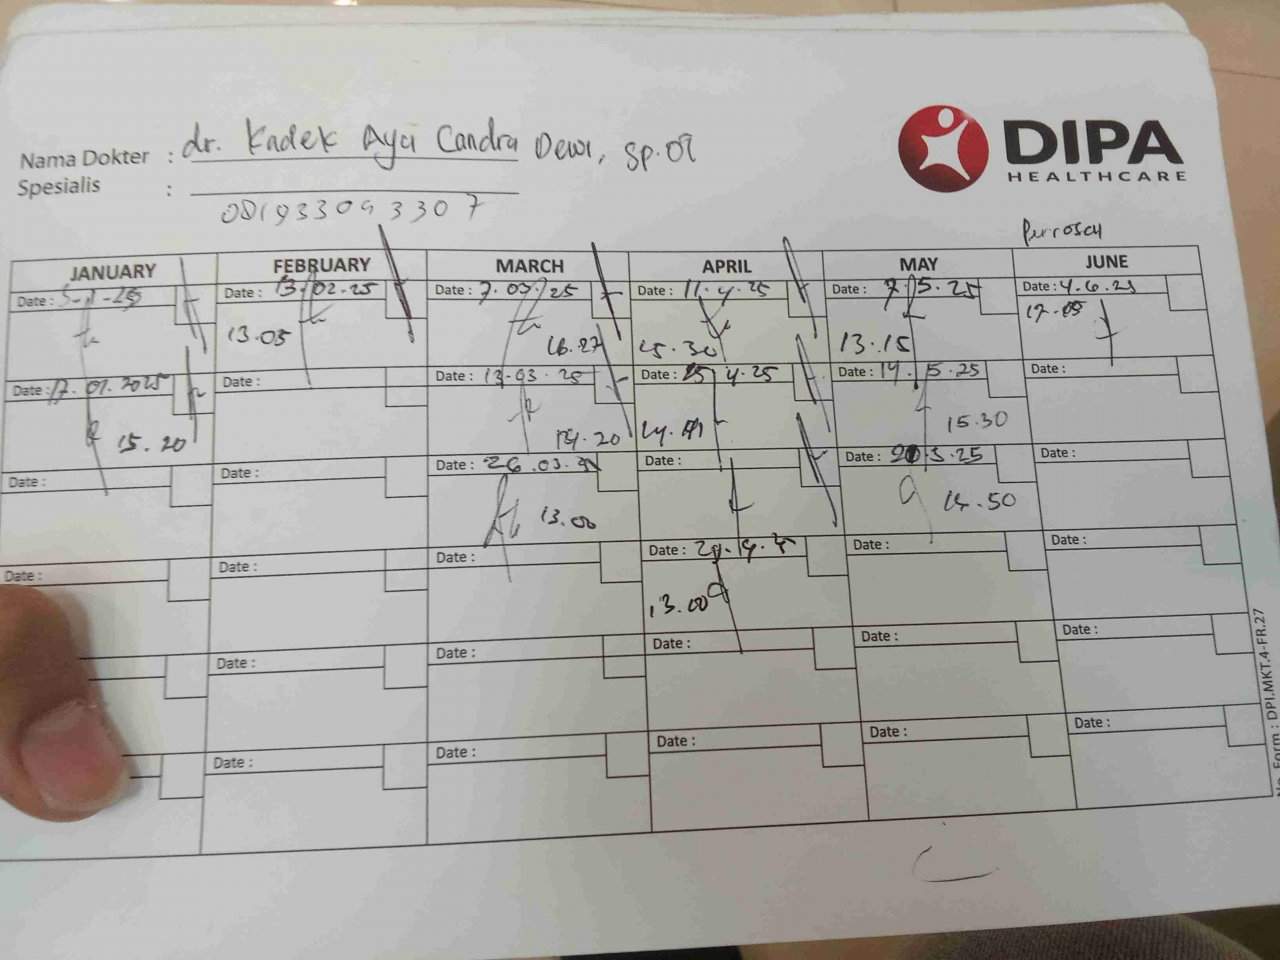 Nama Dokter : dr. Kadek Ayu Candra Dewi, Sp.
Spesialis :
081933093307
DIPA
HEALTHCARE
JANUARY FEBRUARY MARCH APRIL MAY JUNE
Date : Date : 13.02.25 Date : 7.03.25 Date : 11.4.25 Date : 7.5.25 Date : 4.6.25
13.05 16.27 15.30 13.15
Date : 17.01.2025 Date : Date : 13.03.25 Date : 15 4.25 Date : 14.5.25 Date :
15.20 15.30
Date : Date : Date : 26.03. Date : Date : 5.25 Date :
13.00 14.50
Date : Date : Date : Date : Date : Date :
13.00
Date : Date : Date : Date : Date :
Date : Date : Date : Date : Date :
No. Form : DPI.MKT.4-FR.27